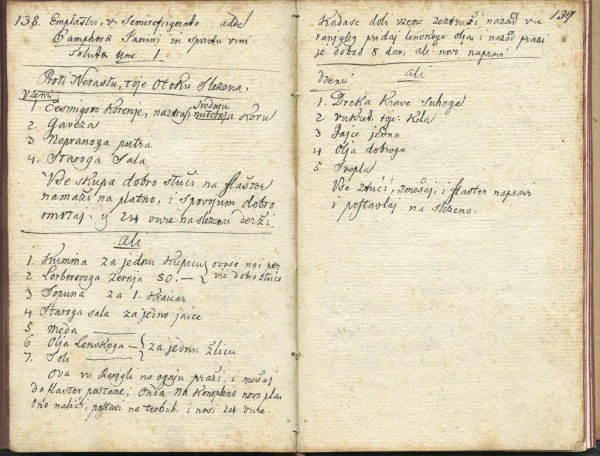 138. Emplastri, & Semirefrigerato adde
Camphora Ianini in spiritu vini
Soluta unc. 1.
Proti Nerastu, toje otoku slezena,
Vzemi
1. Česmigovo Korenje, nazdruži srednju nuternju Koru
2. Gaveza
3. Nepranoga putra
4. Staroga Sala
Vse skupa dobro stuči na flašter
namaži na platno, i spovojum dobro
omotaj: y 24 vure na slezenu derži.
ali
1. Kumina za jednu Kupicu } ovose naj per
2 Lorberovoga zernja 50. — } vič dobro stuče
3 Sopuna za 1. Kraicar
4 Staroga sala za jedno jaice
5 Meda ——
6 Olja Lenskoga — } za jednu žlicu
7. Soli ——
Ova vu Rangli na ognju praži, i mešaj
do flašter postane, onda na Konopleno novo pla
tno nalični, postavi na terbuh. i nosi 24 vure.
139
Kadasc doli vzeme zestruži nazad vu
rangley pridaj lenskoga olja i nazad praži
je dobro 8 dan, ali novo napravi
ali
Vzemi
1. Dreka Krave Suhoga
2 vukret. toje: Kela
3 Jajce jedno
4 Olja dobroga
5 Svapla
Vse ztuči, zmešaj, i flašter napravi
i postavlaj na slezeno.